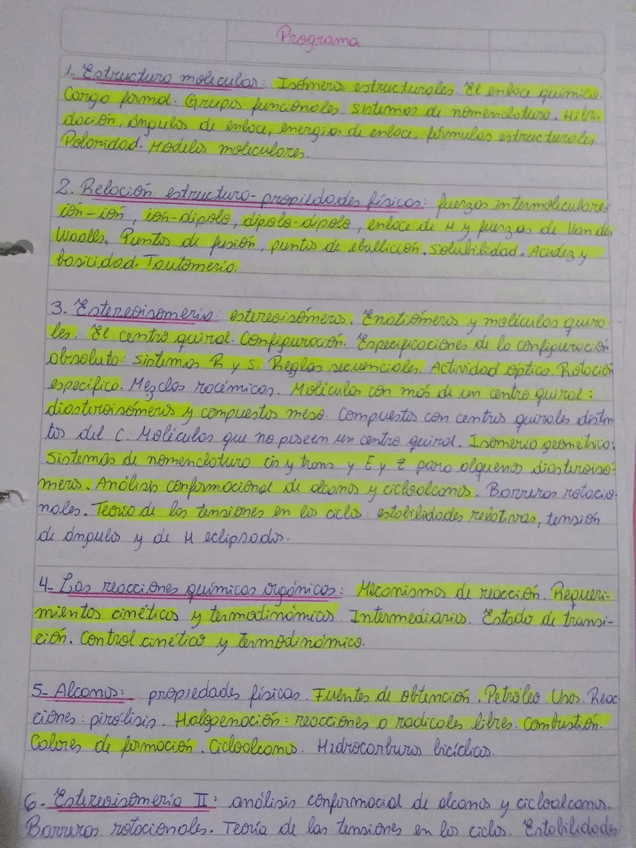 Programa
1. Estructura molecular: Isómeros estructurales. El enlace químico.
Carga formal. Grupos funcionales sistemas de nomenclatura. Hibri-
dación, ángulos de enlace, energías de enlace, fórmulas estructurales
Polaridad. Modelos moleculares.
2. Relación estructura-propiedades físicas: fuerzas intermoleculares
ión-ión, ión-dipolo, dipolo-dipolo, enlace de H y fuerzas de Van der
Waalls. Puntos de fusión, puntos de ebullición. Solubilidad. Acidez y
basicidad. Tautomería.
3. Estereoisomería: estereoisómeros. Enatiómeros y moléculas quira-
les. El centro quiral. Configuración. Especificaciones de la configuración
absoluta: sistemas R y S. Reglas secuenciales. Actividad óptica. Rotación
específica. Mezclas racémicas. Moléculas con más de un centro quiral:
diasteroisómeris y compuestos meso. Compuestos con centros quirales distin-
tos del C. Moléculas que no poseen un centro quiral. Isomería geométrica:
Sistemas de nomenclatura cis y trans y E y Z para alquenos diasteroisó-
meros. Análisis conformacional de alcanos y cicloalcanos. Barreras rotacio-
nales. Teoría de las tensiones en los ciclos: estabilidades relativas, tensión
de ángulo y de H eclipsados.
4- Las reacciones químicas orgánicas: Mecanismos de reacción. Requeri-
mientos cinéticos y termodinámicos. Intermediarios. Estado de transi-
ción. Control cinético y termodinámico.
5- Alcanos: propiedades físicas. Fuentes de obtención. Petróleo Usos. Reac
ciones: pirólisis. Halogenación: reacciones a radicales libres. Combustión.
Calores de formación. Cicloalcanos. Hidrocarburos bicíclicos.
6- Estereoisomería II: análisis conformacial de alcanos y cicloalcanos.
Barreras rotacionales. Teoría de las tensiones en los ciclos. Estabilidades